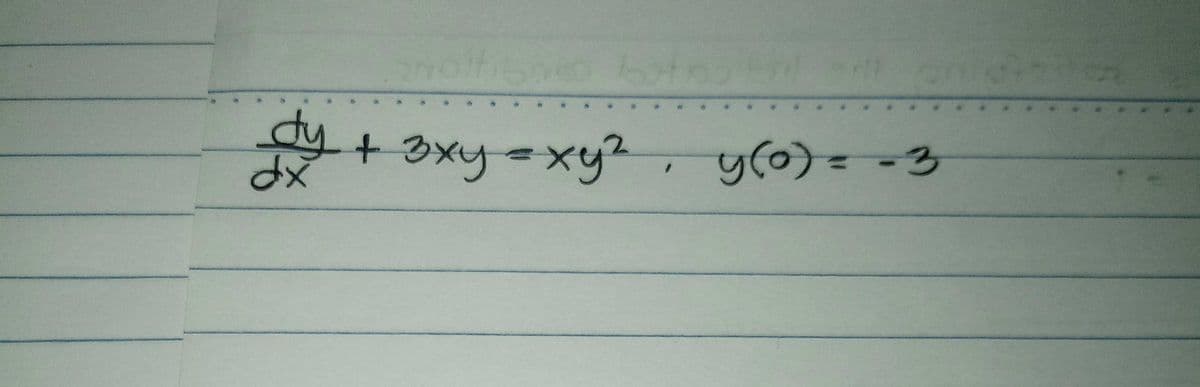 dy/dx + 3xy = xy², y(0) = -3